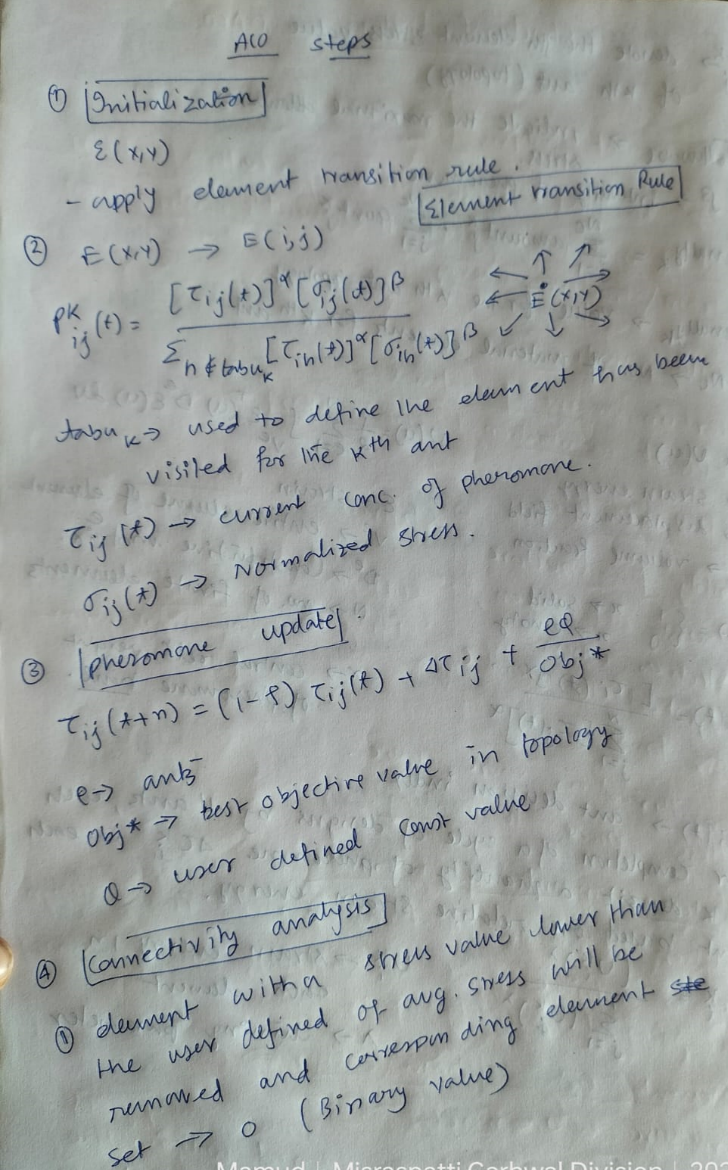 ACO steps
① Initialization
ε(x,y)
- apply element transition rule.
Element transition Rule
② E(x,y) → E(i,j)
P^k_ij(t) = [τ_ij(t)]^α [σ_ij(t)]^β / Σ_n∉tabu_k [τ_in(t)]^α [σ_in(t)]^β
E(x,y)
tabu_k → used to define the element has been
visited for the kth ant
τ_ij(t) → current conc. of pheromone.
σ_ij(t) → Normalized stress.
③ pheromone update
τ_ij(t+n) = (1-ρ) τ_ij(t) + Δτ_ij + eQ / Obj*
e → ants
Obj* → best objective value in topology
Q → user defined const value
④ Connectivity analysis
① element with a stress value lower than
the user defined of avg. stress will be
removed and corresponding element
set → 0 (Binary value)